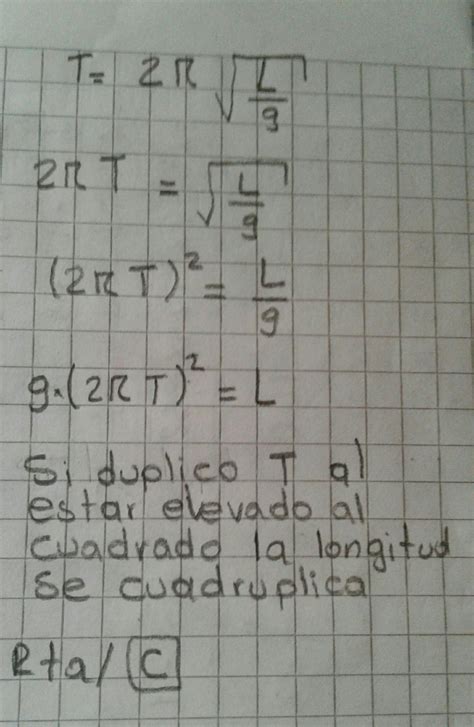 T = 2π √(L/g)
2π T = √(L/g)
(2π T)² = L/g
g·(2π T)² = L
Si duplico T al
estar elevado al
cuadrado la longitud
se cuadruplica
Rta/ C